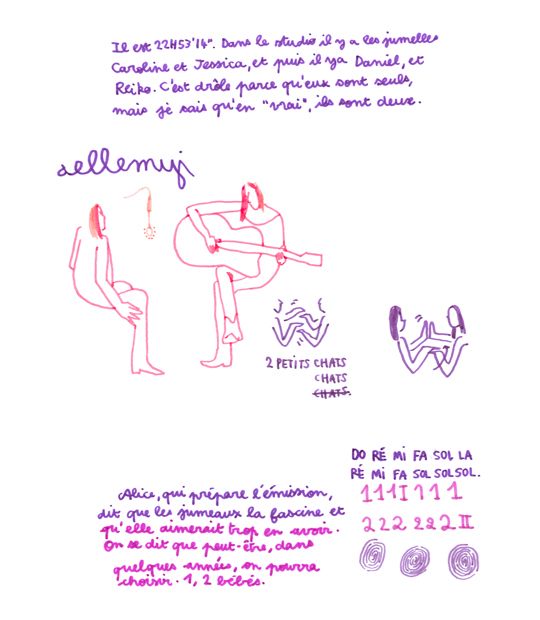 Il est 22H53'14". Dans le studio il y a les jumelles
Caroline et Jessica, et puis il y a Daniel, et
Reiko. C'est drôle parce qu'eux sont seuls,
mais je sais qu'en "vrai", ils sont deux.
sellemuj
2 PETITS CHATS
CHATS
CHATS.
DO RÉ MI FA SOL LA
RÉ MI FA SOL SOL SOL.
111I111
222 222 II
Alice, qui prépare l'émission,
dit que les jumeaux la fascine et
qu'elle aimerait trop en avoir.
On se dit que peut-être, dans
quelques années, on pourra
choisir. 1, 2 bébés.